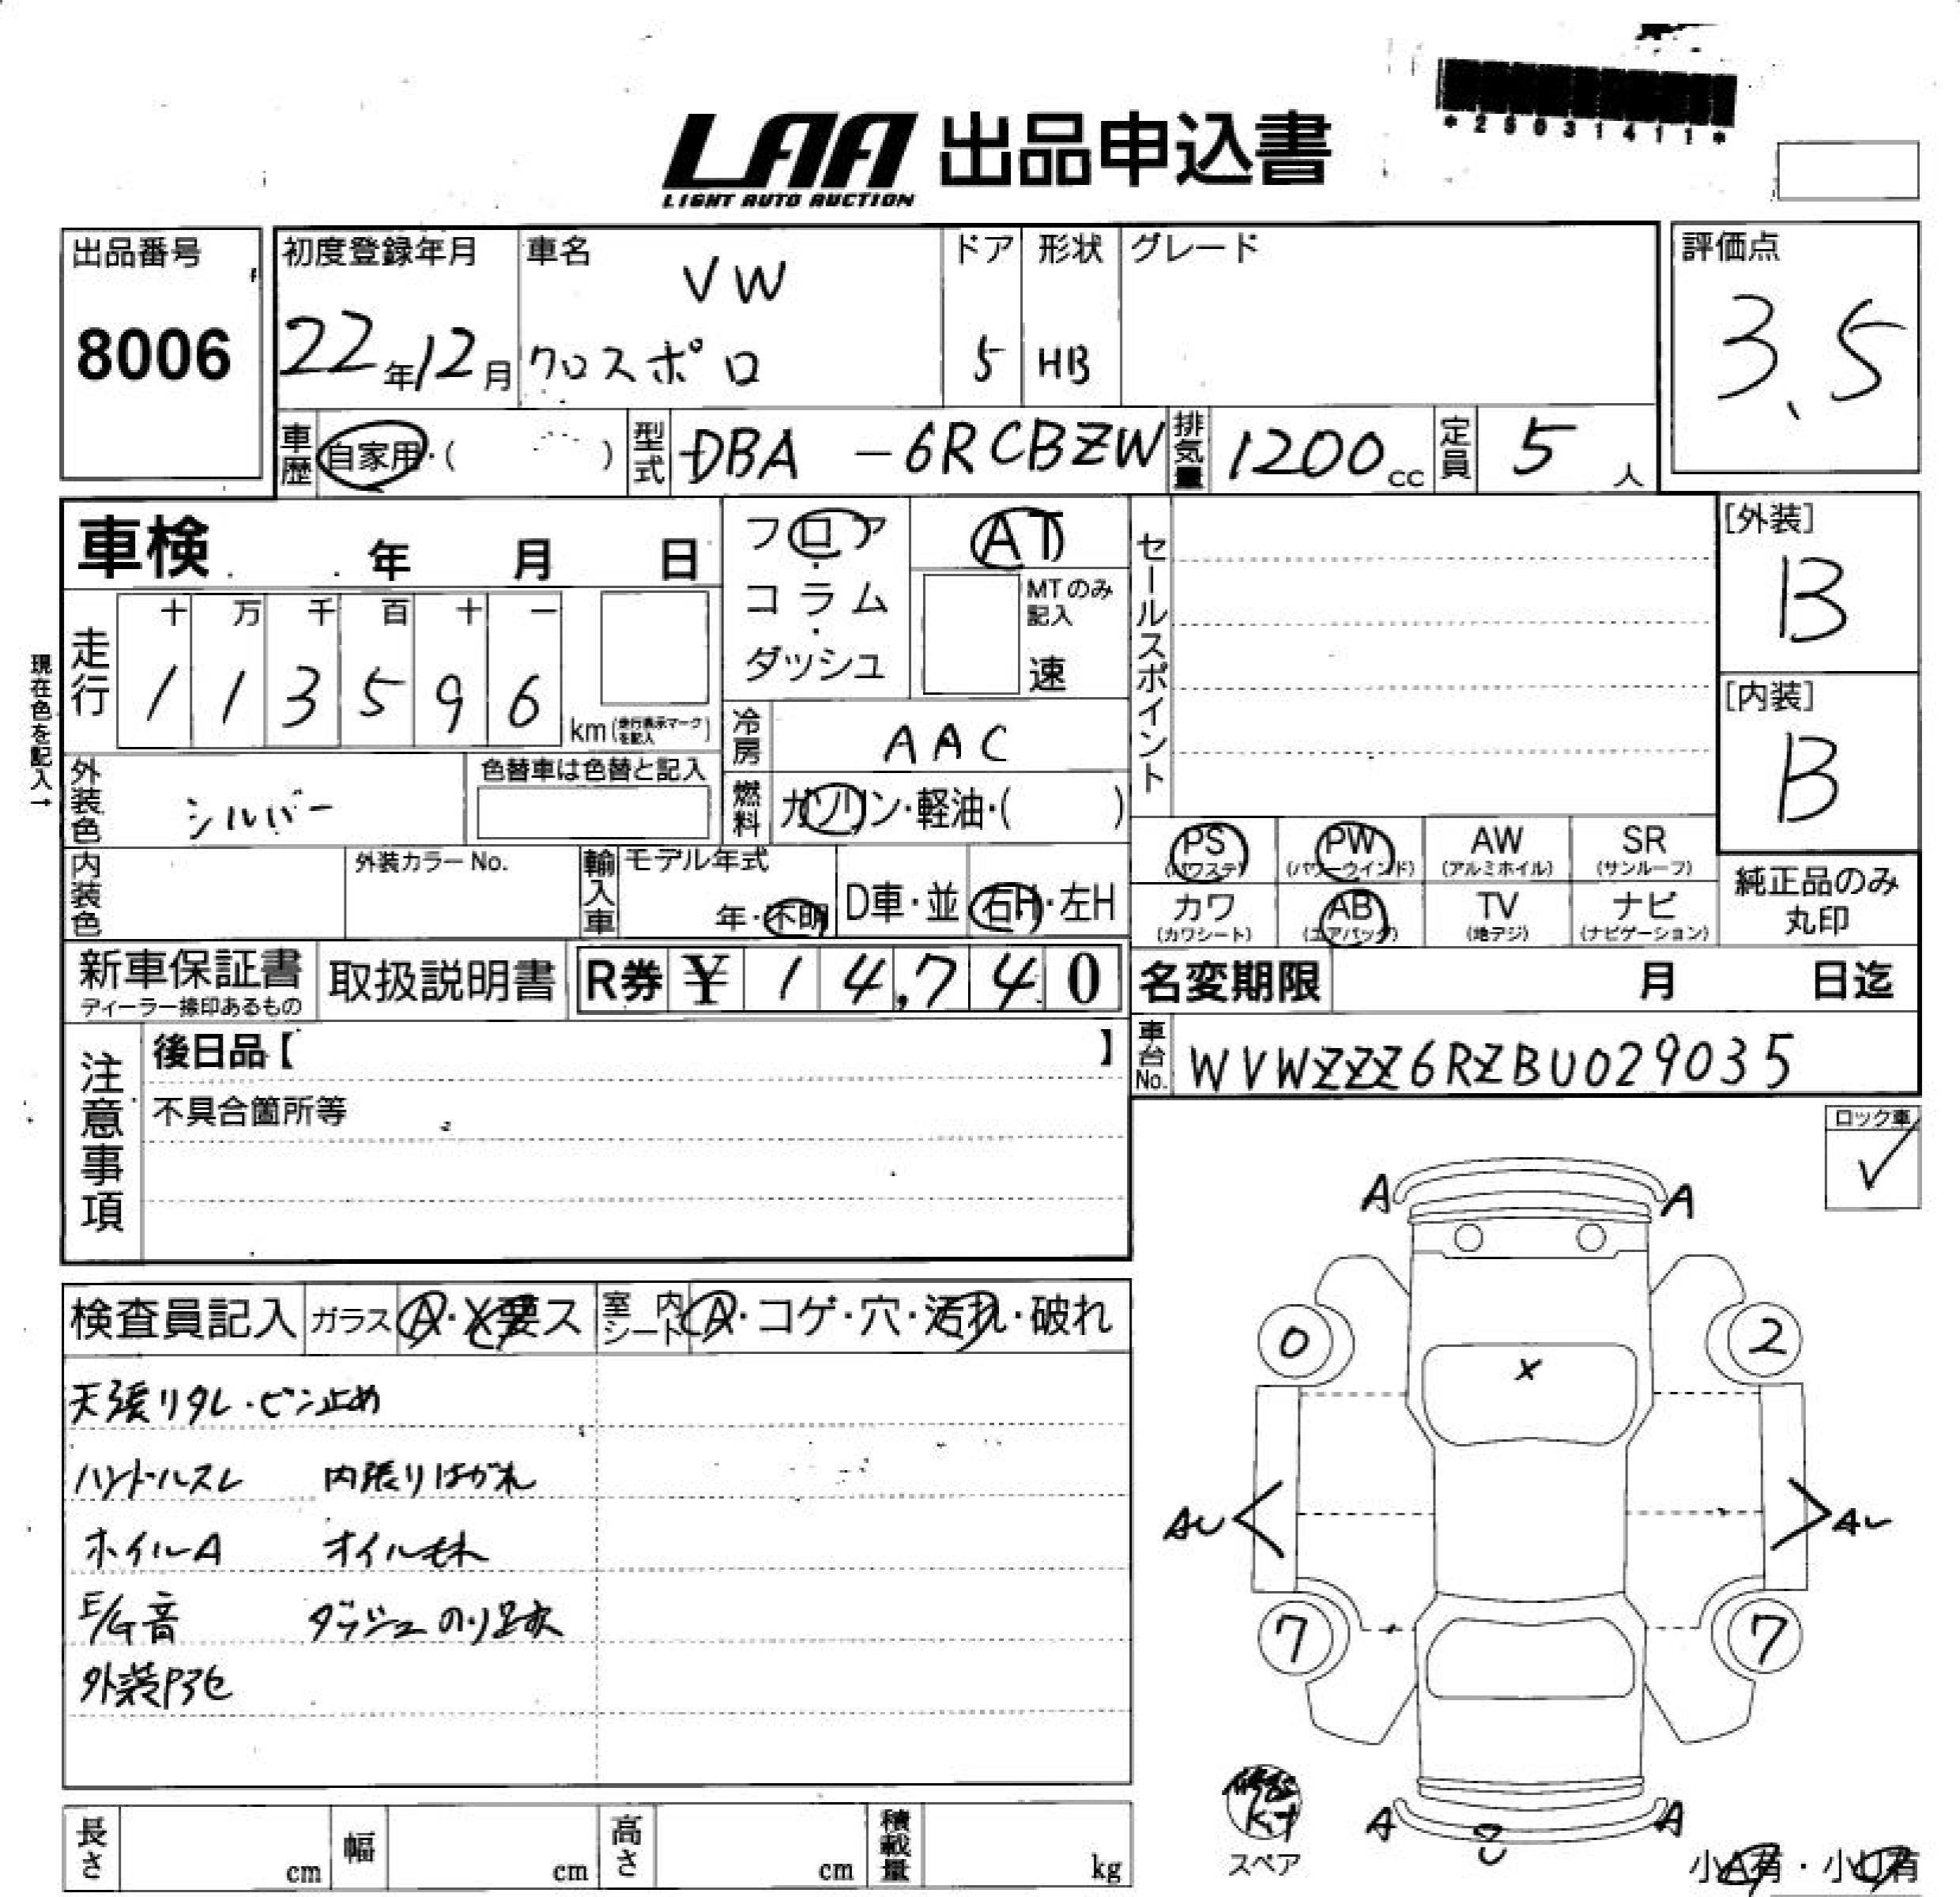 *25031411*
LAA 出品申込書
LIGHT AUTO AUCTION
出品番号
8006
初度登録年月
22年12月
車名
VW
クロスポロ
ドア
5
形状
HB
グレード
評価点
3.5
車歴
自家用・( )
型式
DBA -6RCBZW
排気量
1200cc
定員
5人
車検 年 月 日
フロア・コラム・ダッシュ
AT
MTのみ記入
速
セールスポイント
[外装]
B
[内装]
B
現在色を記入→
走行
十 万 千 百 十 一
1 1 3 5 9 6
km(走行表示マークを記入)
冷房
AAC
外装色
シルバー
色替車は色替と記入
燃料
ガソリン・軽油・( )
PS(パワステ) PW(パワーウインド) AW(アルミホイル) SR(サンルーフ)
カワ(カワシート) AB(エアバッグ) TV(地デジ) ナビ(ナビゲーション)
純正品のみ
丸印
内装色
外装カラーNo.
輸入車
モデル年式
年・不明
D車・並
右H・左H
新車保証書
ディーラー捺印あるもの
取扱説明書
R券 ¥ 14,740
名変期限 月 日迄
車台No.
WVWZZZ6RZBU029035
注意事項
後日品【 】
不具合箇所等
ロック車
✓
検査員記入
ガラス A・X・要ス
室内シート A・コゲ・穴・汚れ・破れ
天張りタレ・ピン止め
ハンドルスレ 内張りはがれ
ホイルA オイルモレ
E/G音 ダッシュのり跡
外装
A A
0 2
X
AU
7 7
A A
Kit
スペア
小A有・小U有
長さ cm
幅 cm
高さ cm
積載量 kg